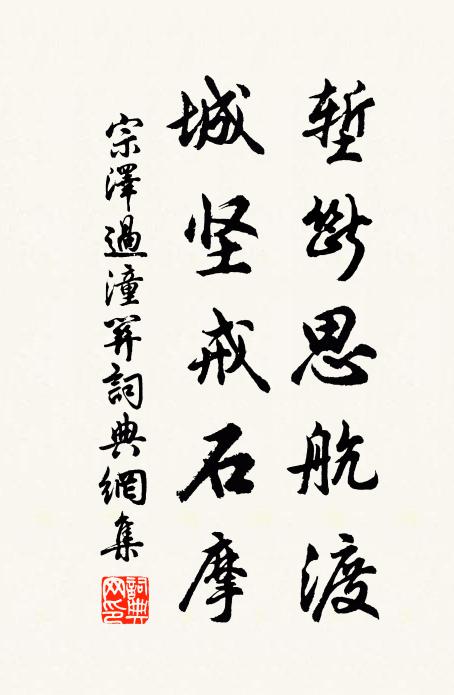 堑断思航渡
城坚戒石摩
宗澤過潼關詞典網集
詞典网印